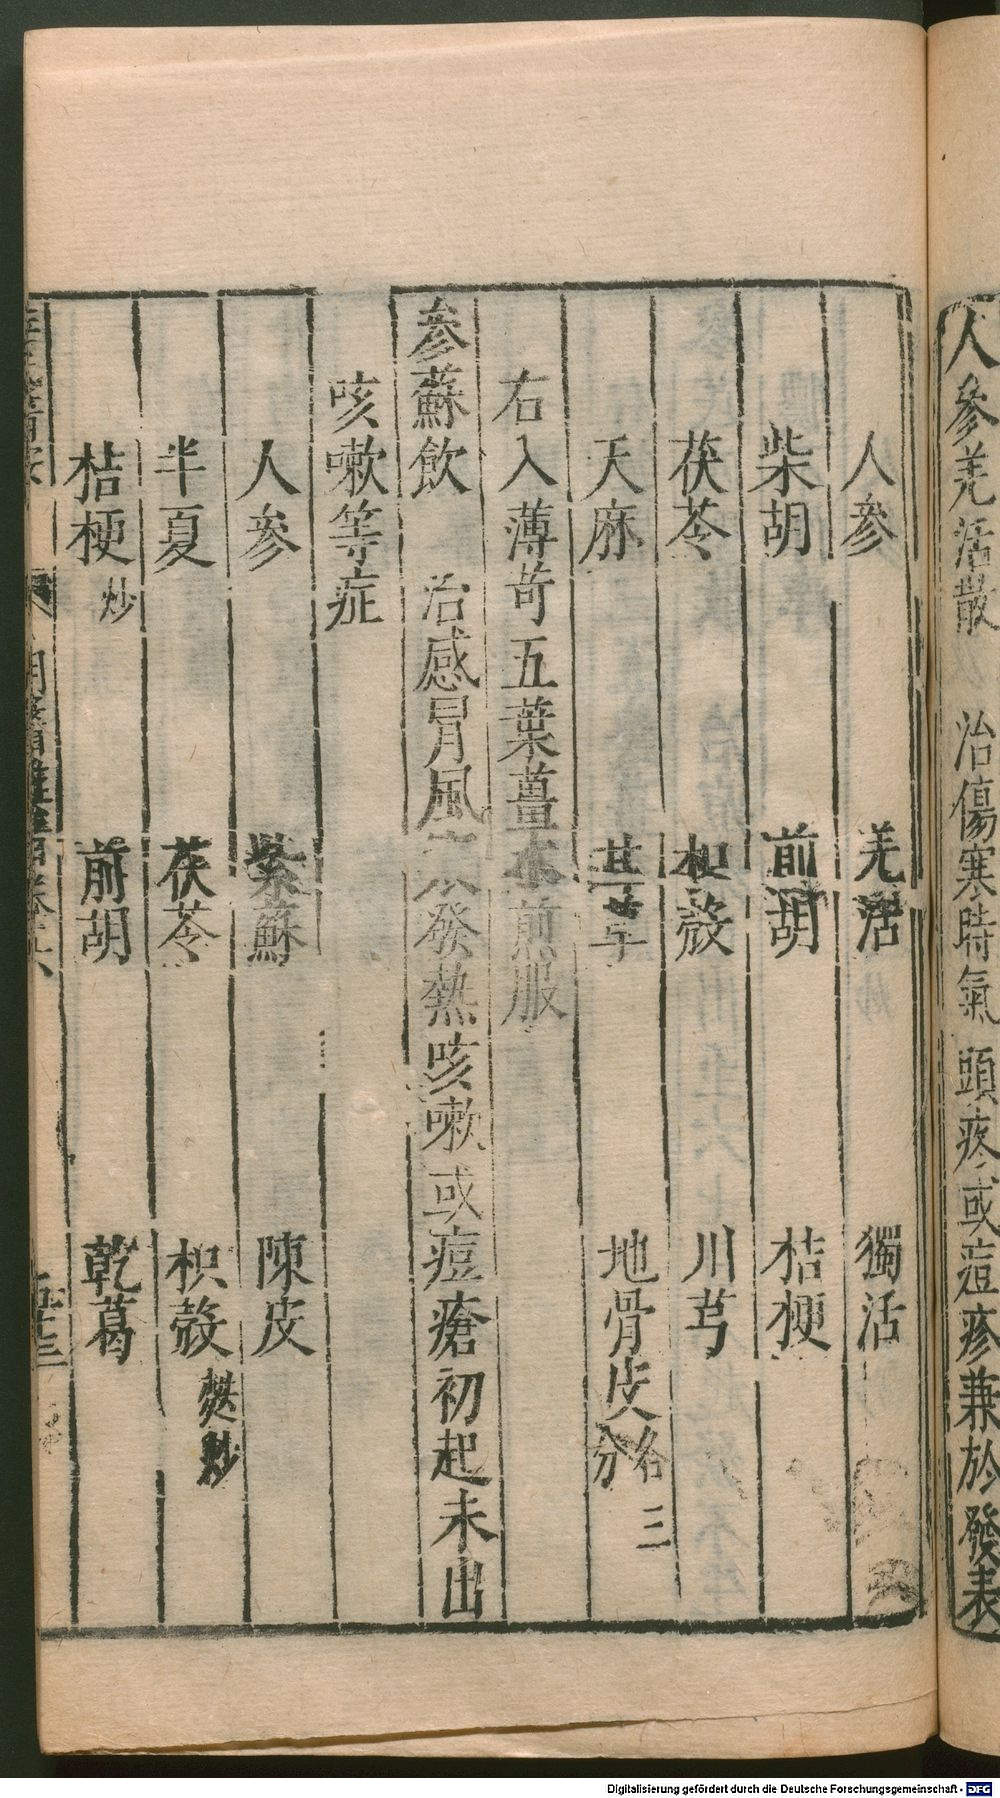 人參羌活散 治傷寒時氣頭疼或痘疹兼於發表
人參 羌活 獨活
柴胡 前胡 桔梗
茯苓 枳殼 川芎
天麻 甘草 地骨皮各三分
右入薄苛五葉薑水煎服
參蘇飲 治感冒風寒發熱咳嗽或痘瘡初起未出
咳嗽等症
人參 紫蘇 陳皮
半夏 茯苓 枳殼麩炒
桔梗炒 前胡 乾葛
Digitalisierung gefördert durch die Deutsche Forschungsgemeinschaft - DFG